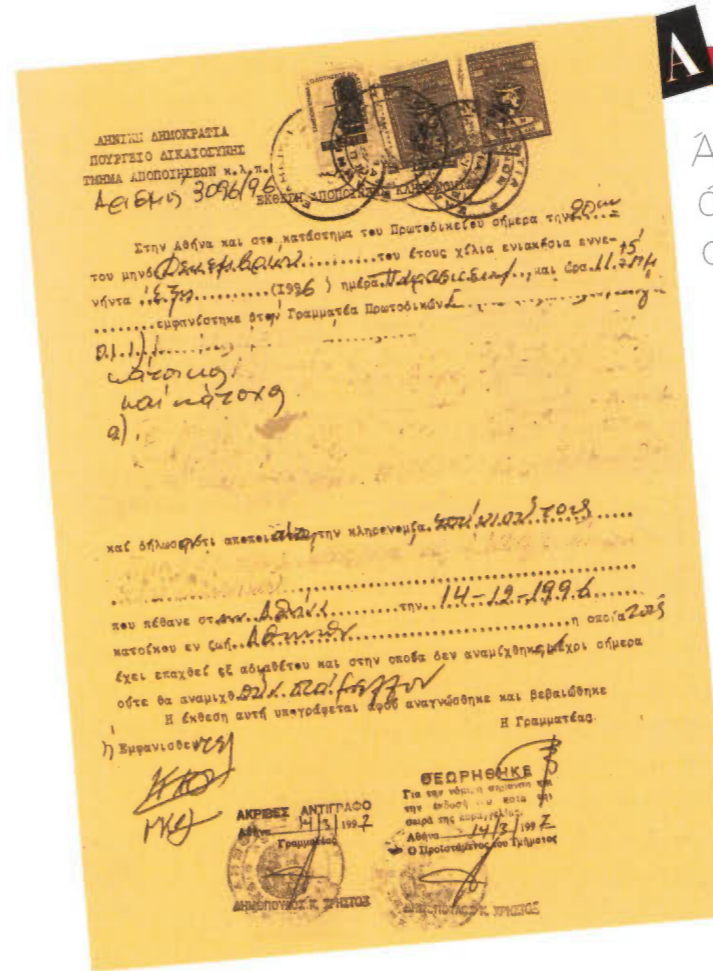 ΛΗΝΙΚΗ ΔΗΜΟΚΡΑΤΙΑ
ΠΟΥΡΓΕΙΟ ΔΙΚΑΙΟΣΥΝΗΣ
ΤΜΗΜΑ ΑΠΟΠΟΙΗΣΕΩΝ κ.λ.π.
Αριθμός 3096/96
ΕΚΘΕΣΗ ΑΠΟΠΟΙΗΣΗΣ ΚΛΗΡΟΝΟΜΙΑΣ
Στην Αθήνα και στο κατάστημα του Πρωτοδικείου σήμερα την 20
του μηνός Δεκεμβρίου του έτους χίλια ενιακόσια ενε-
νήντα έξη (1996) ημέρα Παρασκευή, και ώρα 11.
εμφανίστηκε στον Γραμματέα Πρωτοδικών
κάτοικοι
και κάτοχοι
α).
καί δήλωσαν ότι αποποιούνται την κληρονομία του υιού τους
που πέθανε στην Αθήνα την 14-12-1996
κατοίκου εν ζωή Αθηνών η οποία τους
έχει επαχθεί εξ αδιαθέτου και στην οποία δεν αναμίχθηκαν μέχρι σήμερα
ούτε θα αναμιχθούν στο μέλλον
Η έκθεση αυτή υπογράφεται αφού αναγνώσθηκε και βεβαιώθηκε
Η Γραμματέας
Εμφανισθέντες
ΑΚΡΙΒΕΣ ΑΝΤΙΓΡΑΦΟ
Αθήνα 14/3/1997
Γραμματέας
ΔΗΜΟΠΟΥΛΟΣ Κ. ΧΡΗΣΤΟΣ
ΘΕΩΡΗΘΗΚΕ
Για την νόμιμη σήμανση και
την έκδοσή του κατά την
σειρά της παραγγελίας
Αθήνα 14/3/1997
Ο Προϊστάμενος του Τμήματος
ΔΗΜΟΠΟΥΛΟΣ Κ. ΧΡΗΣΤΟΣ
Α